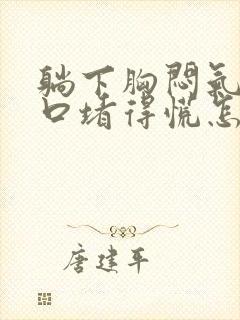 躺下胸悶氣
口堵得慌怎
唐建平